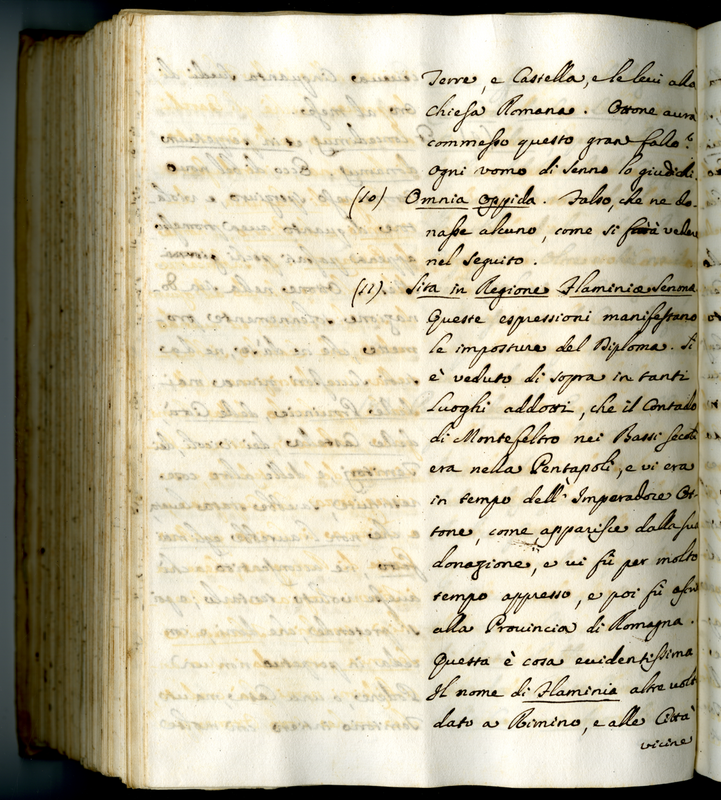 Terre, e Castella, e le levi alla
Chiesa Romana. Ottone aurà
commesso questo gran fallo?
Ogni uomo di senno lo giudichi.
(10) Omnia oppida. Falso, che ne do-
nasse alcuno, come si farà vedere
nel seguito.
(11) Sita in Regione Flaminiæ Senona
Queste espressioni manifestano
le imposture del Diploma. Si
è veduto di sopra in tanti
Luoghi addotti, che il Contado
di Montefeltro nei Bassi secoli
era nella Pentapoli, e vi era
in tempo dell'Imperadore Ot-
tone, come apparisce dalla sua
donazione, e vi fù per molto
tempo appresso, e poi fù
alla Prouincia di Romagna.
Questa è cosa euidentissima
Il nome di Flaminia altre volte
dato a Rimino, e alle Città
vicine